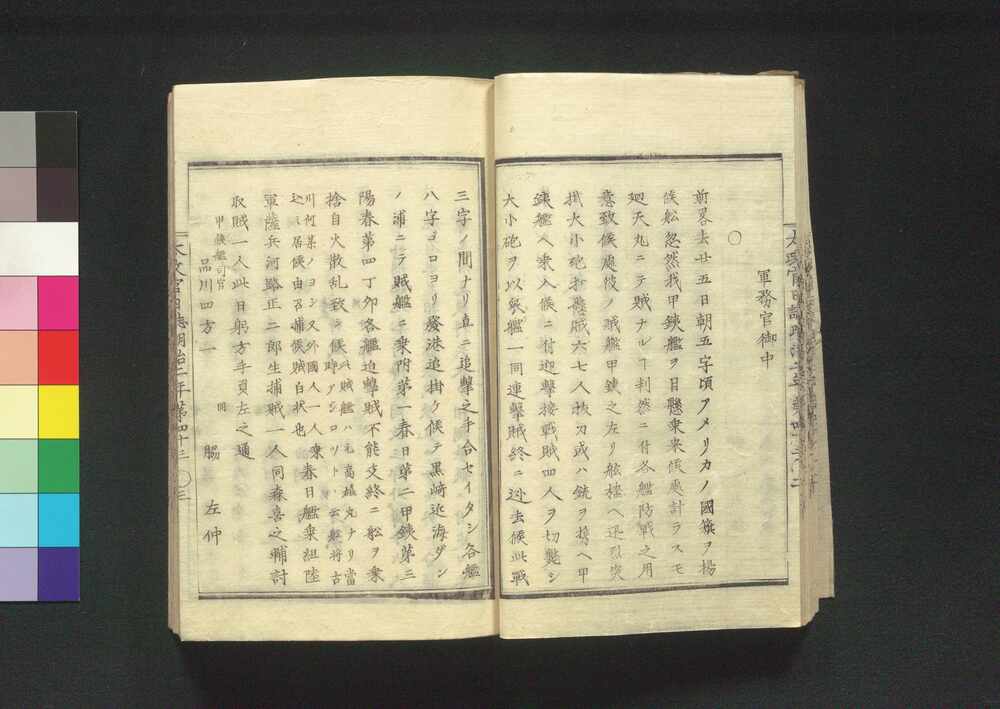 軍務官御中
〇
前畧去廿五日朝五字頃アメリカノ國旗ヲ揚
候船忽然我甲鉄艦ヲ目懸乗来候処計ラスモ
廻天丸ニテ賊ナルヿ判然ニ付各艦防戦之用
意致候處彼ノ賊艦甲鉄之左リ舷檣へ迅烈突
掛大小砲打懸賊六七人抜刀或ハ銃ヲ携ヘ甲
鉄艦ヘ乗入候ニ付迎撃接戦賊四人ヲ切斃シ
大小砲ヲ以各艦一同連撃賊終ニ迯去候此戦
三字ノ間ナリ直ニ追撃之手合セイタシ各艦
八字コロヨリ發港追掛ケ候テ黒崎近海ダン
ノ浦ニテ賊艦ニ乗附第一春日第二甲鉄第三
陽春第四丁卯各艦迫撃賊不能支終ニ船ヲ乗
捨自火散乱致シ候此賊艦ハ元高雄丸ナリ當
時アシロツト云船将古
川何某ノヨシ又外國人一人乗
込ミ居候由召捕候賊白状也春日艦乗組陸
軍薩兵河野正二郎生捕賊一人同森喜之輔討
取賊一人此日躬方手負左之通
甲鉄艦司官
品川四方一
同
脇左仲
太政官日誌明治二年第四十三 〇三